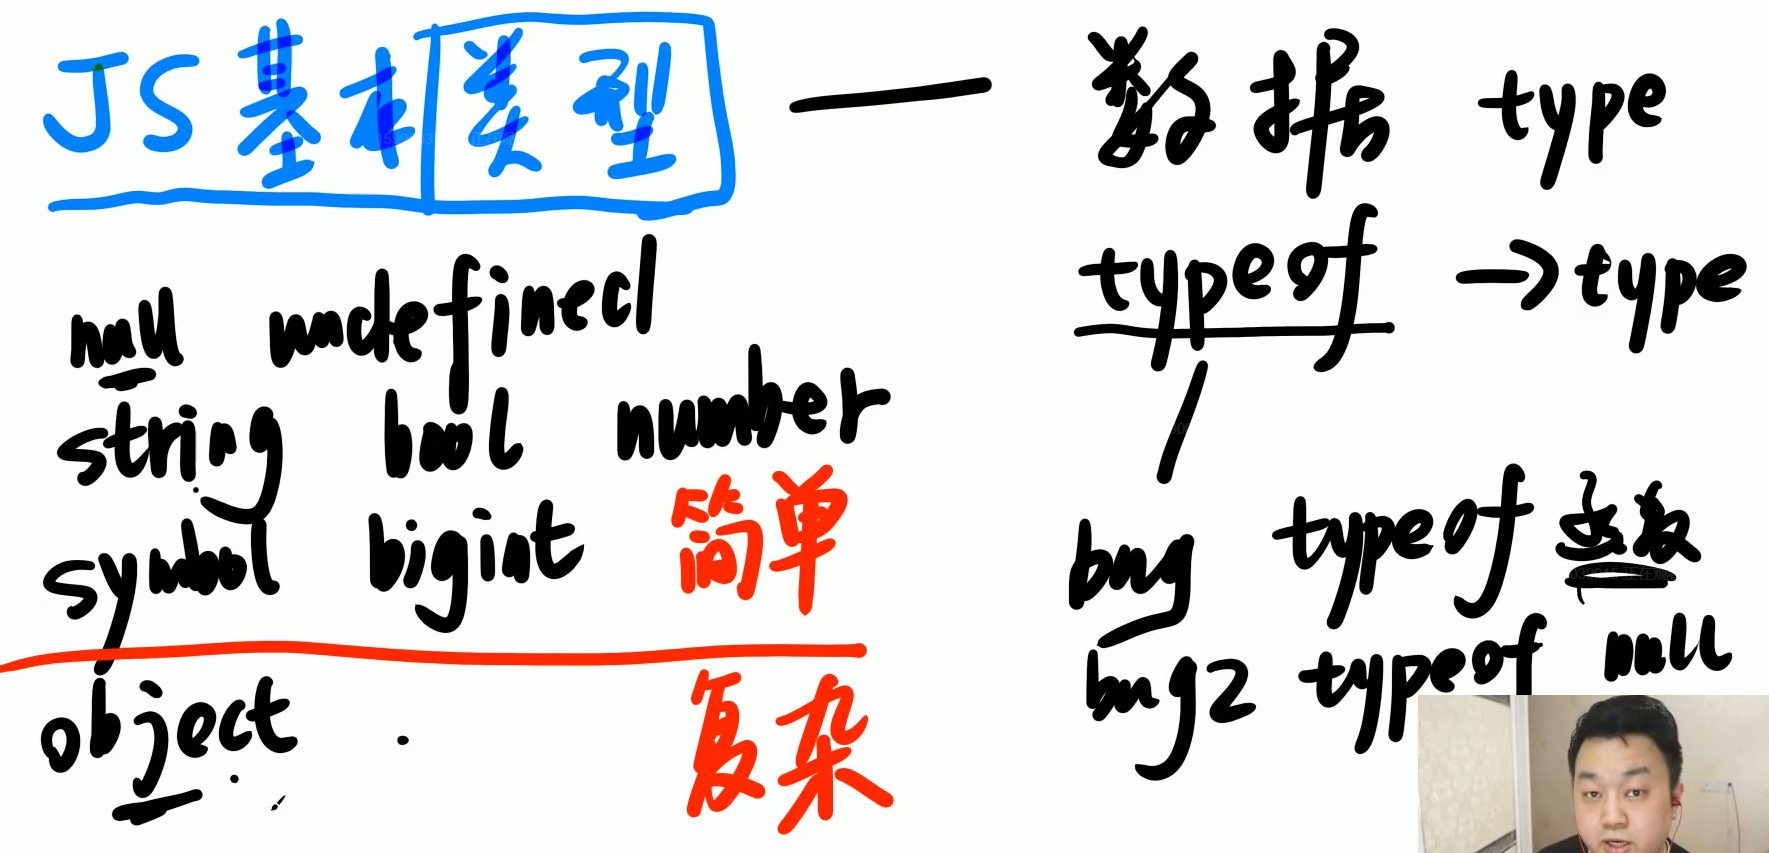 JS基本类型 — 数据 type
null undefined
string bool number
symbol bigint 简单
object 复杂
typeof → type
bug typeof 函数
bug2 typeof null